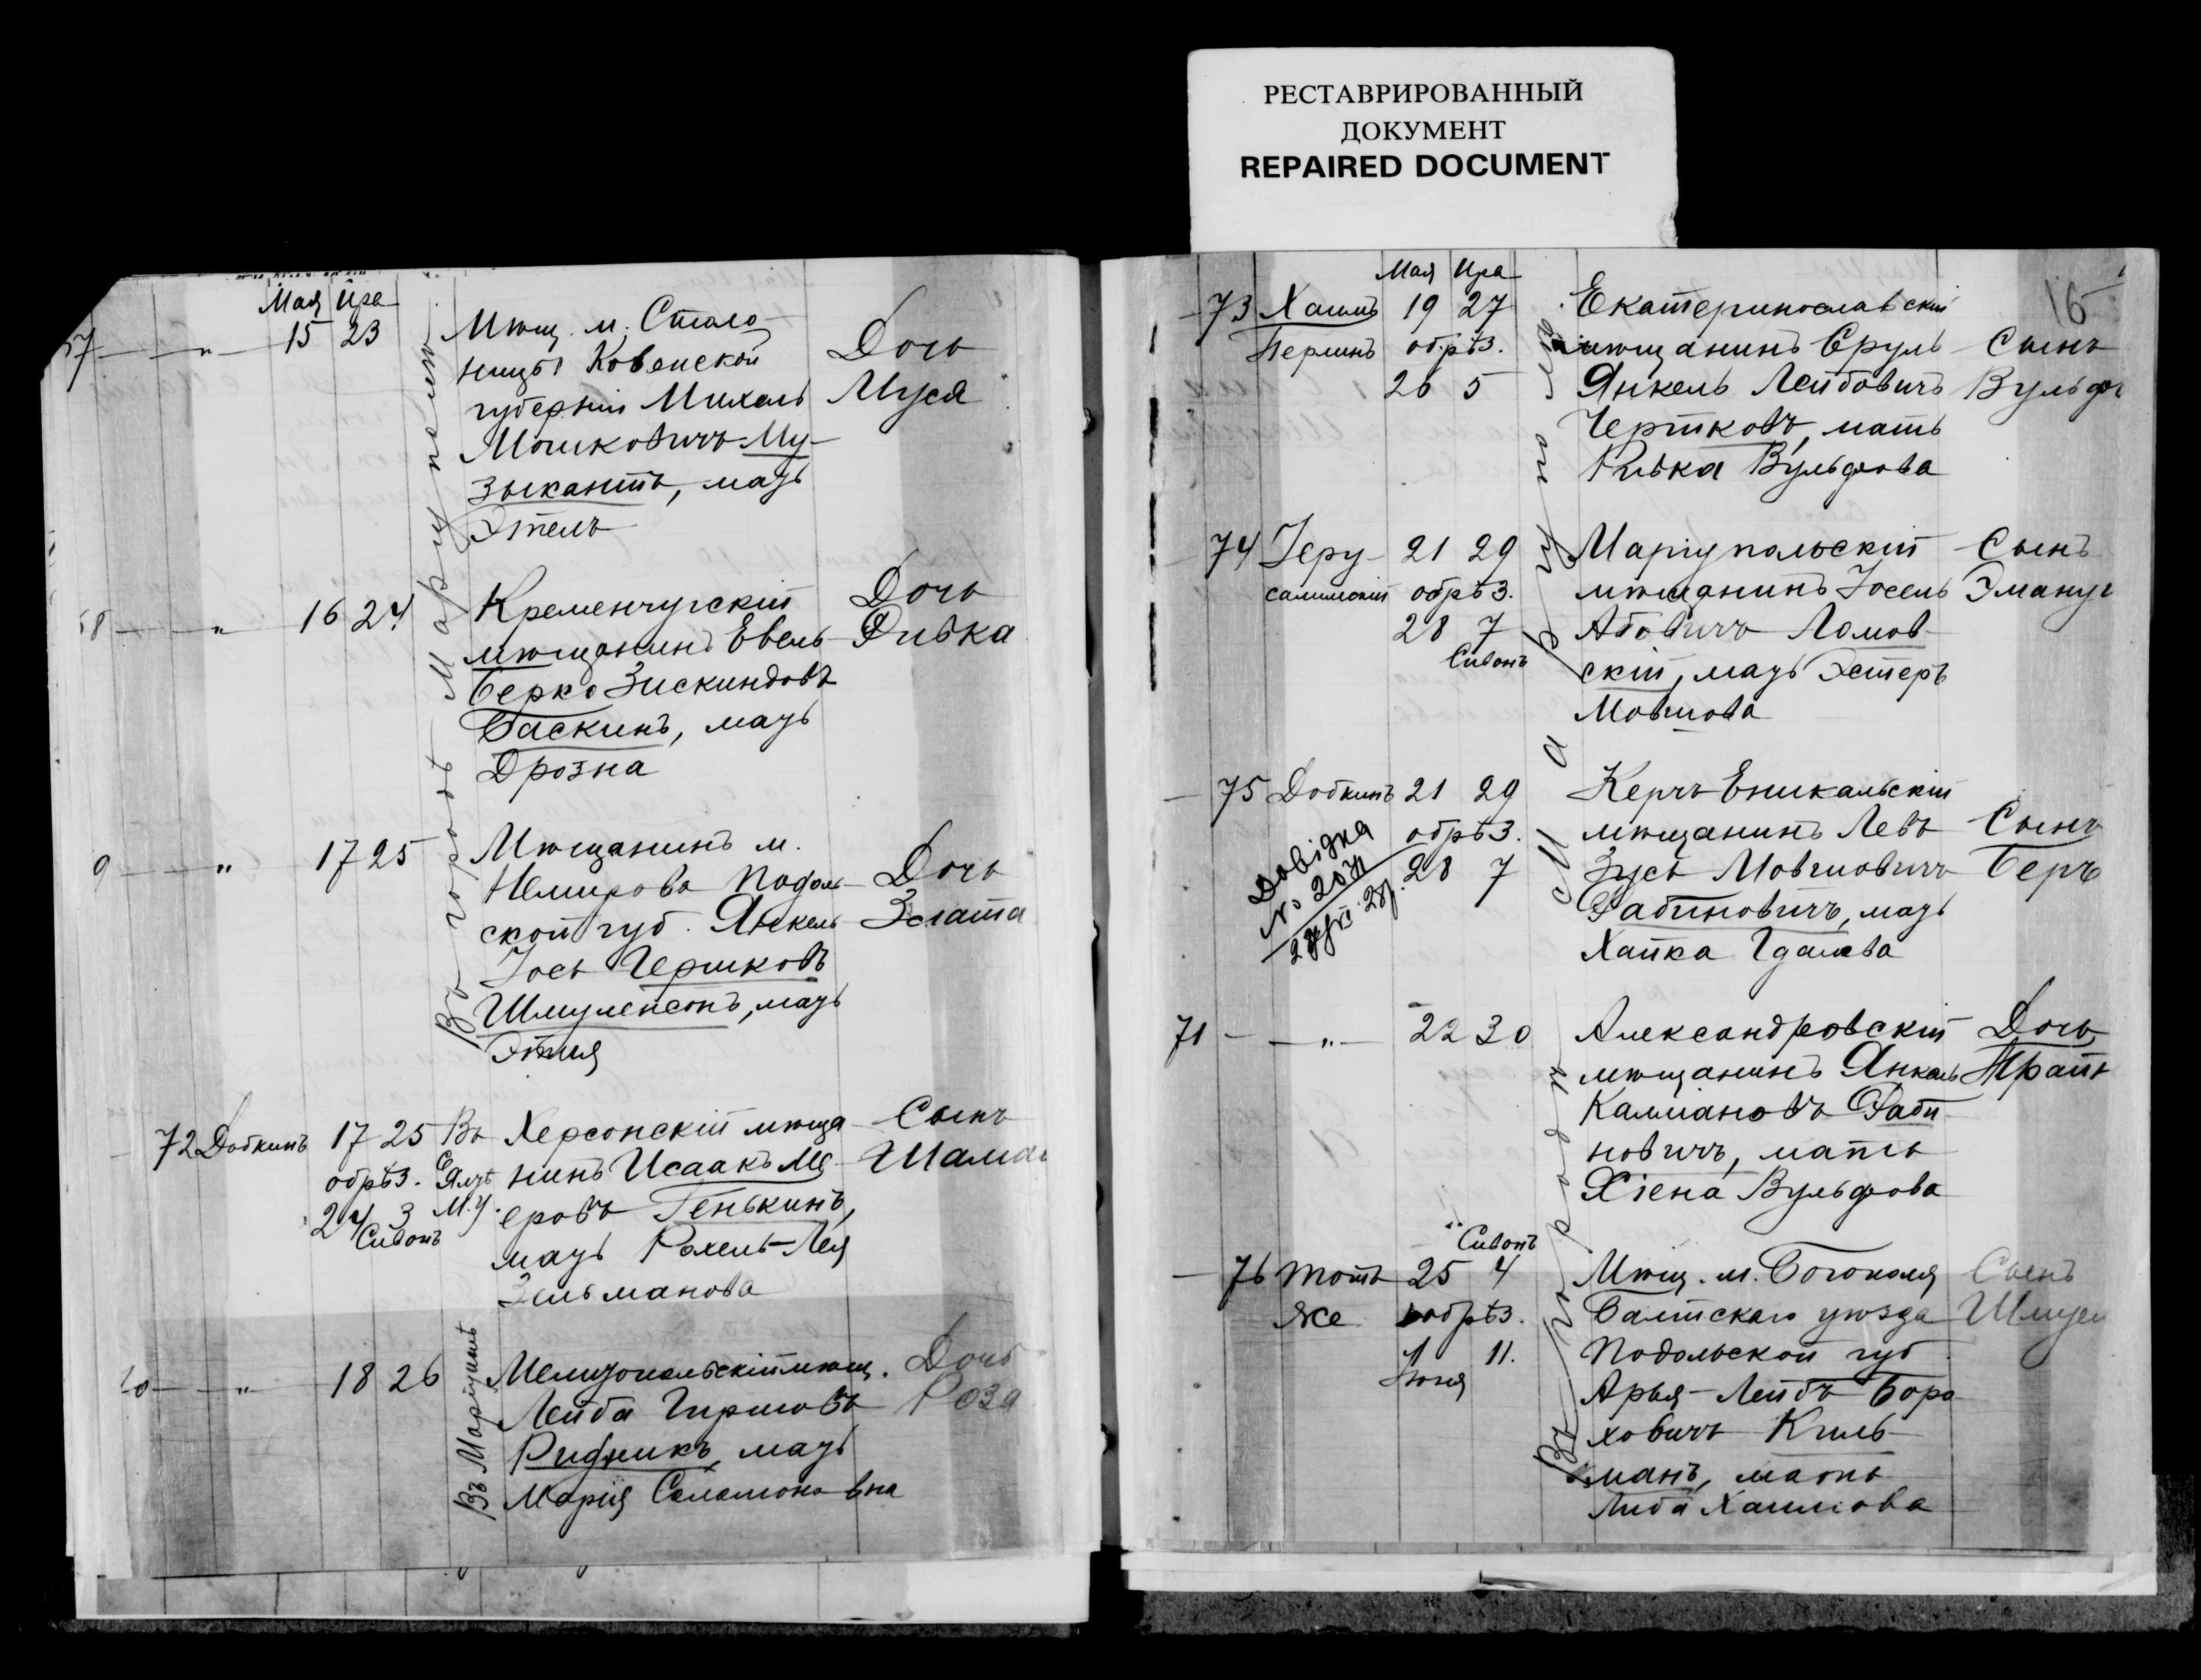 РЕСТАВРИРОВАННЫЙ
ДОКУМЕНТ
REPAIRED DOCUMENT
Мая Ира
15 23
Мѣщ. м. Столо-
ницы Ковенской
губерніи Михель
Мошковичъ Му-
зыкантъ, мать
Этель
Дочь
Муся
Въ городѣ Маріуполѣ
16 24
Кременчугскій
мѣщанинъ Евель
Берко Зискиндовъ
Баскинъ, мать
Дрозна
Дочь
Ривка
9 " 17 25
Мѣщанинъ м.
Немирова Подоль-
ской губ. Янкель
Іось Гершковъ
Шмулейсонъ, мать
Этля
Дочь
Злата
72 Добкинъ 17 25 Въ
обрѣз.
24 3 М.У.
Сивонъ
Херсонскій мѣща-
нинъ Исаакъ Ме-
еровъ Генькинъ,
мать Рохель-Лея
Зельманова
Сынъ
" 18 26
Въ Маріуполѣ
Мелитопольскій мѣщ.
Лейба Гиршовъ
мать
Марія Соломоновна
Дочь
Роза
16
Мая Ира
73 Хаимъ 19 27
Перлинъ обрѣз.
26 5
Екатеринославскій
мѣщанинъ Сруль
Янкель Лейбовичъ
Чертковъ, мать
Ривка Вульфова
Сынъ
Вульфъ
74 Іеру- 21 29
салимскій обрѣз.
28 7
Сивонъ
Маріупольскій
мѣщанинъ Іосель
Абовичъ Ломов-
скій, мать Эстеръ
Мовшова
Сынъ
Эмануе
75 Добкинъ 21 29
обрѣз.
28 7
Довідка
№ 2011
Керчъ-Еникальскій
мѣщанинъ Левъ
Зусь Мовшовичъ
Рабиновичъ, мать
Хайка Гдалева
Сынъ
Беръ
71 " 22 30
Александровскій
мѣщанинъ Янкель
Калмановъ Раби-
новичъ, мать
Хіена Вульфова
Дочь
Въ городѣ Маріуполѣ
Сивонъ
76 Тотъ 25 4
же обрѣз.
1 11.
Іюня
Мѣщ. м. Богополя
Балтскаго уѣзда
Подольской губ.
Арья-Лейбъ Боро-
ховичъ Киль-
манъ, мать
Либа Хаимова
Сынъ
Шмуел